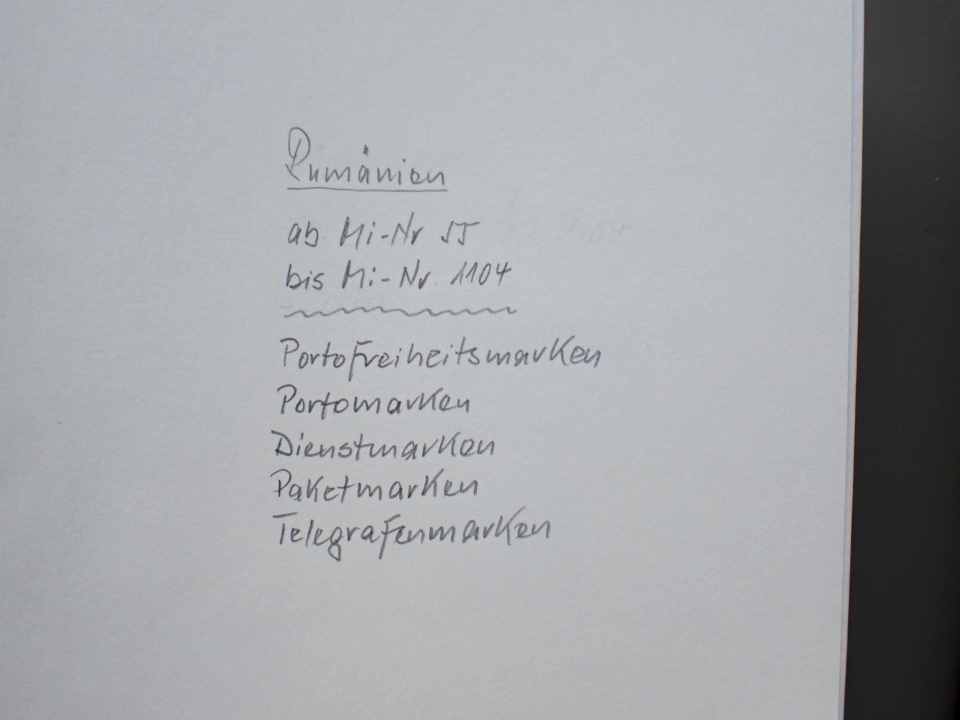 Rumänien
ab Mi-Nr
bis Mi-Nr. 1104
Portofreiheitsmarken
Portomarken
Dienstmarken
Paketmarken
Telegrafenmarken